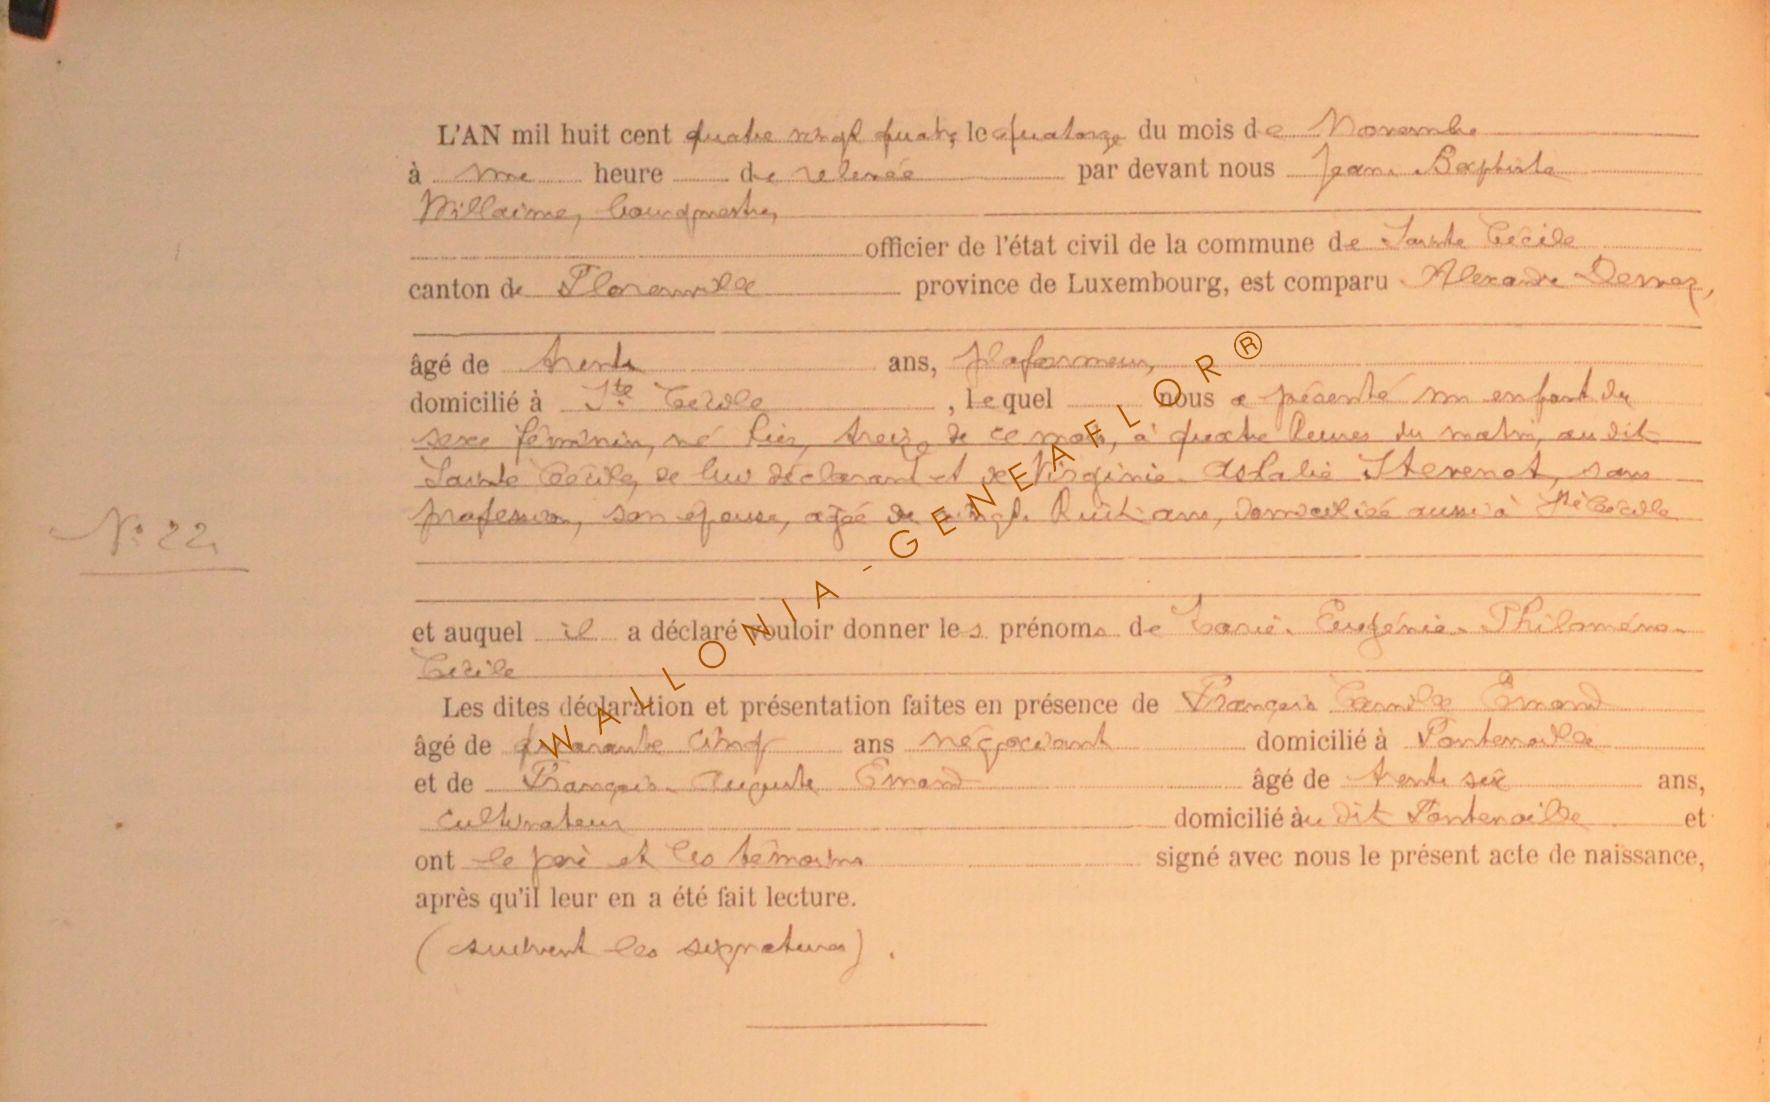 L'AN mil huit cent quatre vingt quatre, le quatorze du mois de Novembre
à une heure de relevée par devant nous Jean Baptiste
Willaime, bourgmestre,
officier de l'état civil de la commune de Sainte Cécile
canton de Florenville province de Luxembourg, est comparu Alexandre
âgé de trente ans, plafonneur,
domicilié à Ste Cécile, lequel nous a présenté un enfant du
sexe féminin, né hier, treize de ce mois, à quatre heures du matin, au dit
Sainte Cécile, de lui déclarant et de Virginie Stevenot, sans
profession, son épouse, agée de vingt huit ans, domiciliée aussi à Ste Cécile
N° 22.
et auquel il a déclaré vouloir donner les prénoms de Marie Eugénie Philomène
Cécile
Les dites déclaration et présentation faites en présence de François Camille Emond
âgé de quarante cinq ans négociant domicilié à Fontenoille
et de François Auguste Emond âgé de trente six ans,
cultivateur domicilié au dit Fontenoille et
ont le père et les témoins signé avec nous le présent acte de naissance,
après qu'il leur en a été fait lecture.
(suivent les signatures).
WALLONIA-GENEAFLOR®